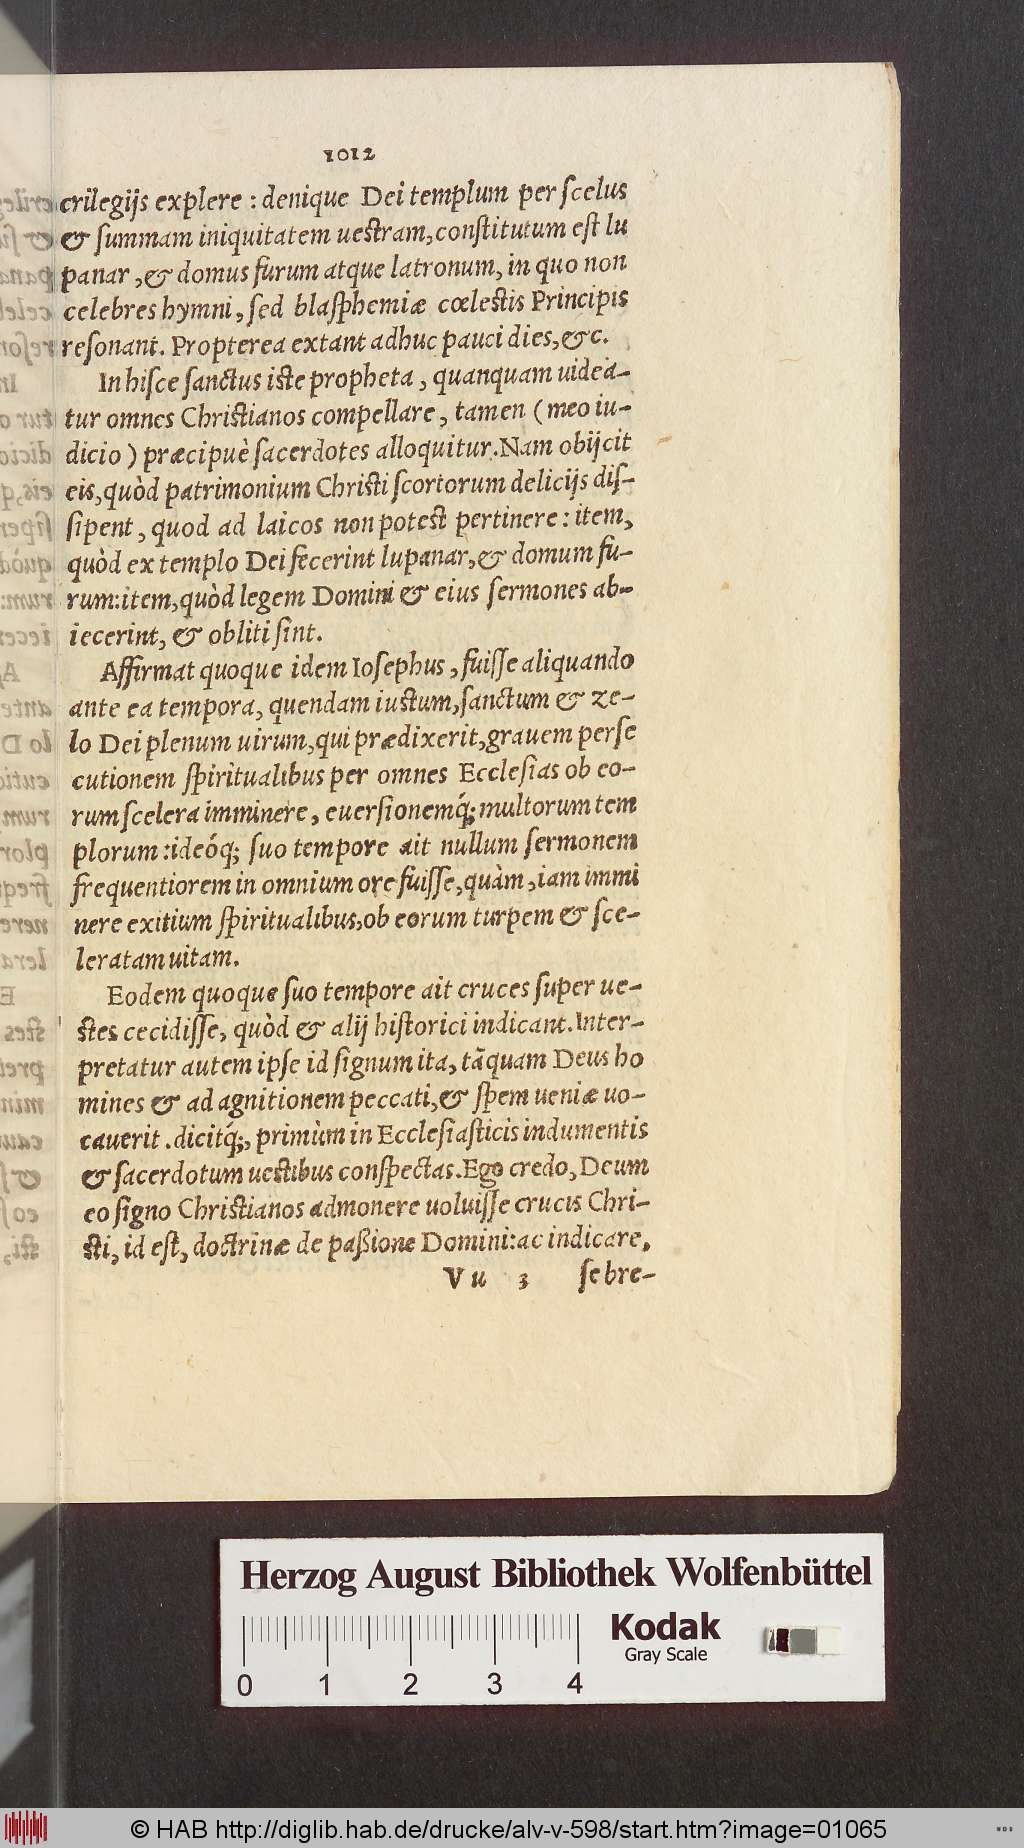 1012
crilegijs explere : denique Dei templum per ſcelus
& ſummam iniquitatem ueſtram, conſtitutum eſt lu
panar, & domus furum atque latronum, in quo non
celebres hymni, ſed blaſphemiæ cœleſtis Principis
reſonant. Propterea extant adhuc pauci dies, &c.
In hiſce ſanctus iſte propheta, quanquam uidea-
tur omnes Chriſtianos compellare, tamen (meo iu-
dicio) præcipuè ſacerdotes alloquitur. Nam obijcit
eis, quòd patrimonium Chriſti ſcortorum delicijs diſ-
ſipent, quod ad laicos non poteſt pertinere: item,
quòd ex templo Dei fecerint lupanar, & domum fu-
rum: item, quòd legem Domini & eius ſermones ab-
iecerint, & obliti ſint.
Affirmat quoque idem Ioſephus, fuiſſe aliquando
ante ea tempora, quendam iuſtum, ſanctum & ze-
lo Dei plenum uirum, qui prædixerit, grauem perſe
cutionem ſpiritualibus per omnes Eccleſias ob eo-
rum ſcelera imminere, euerſionemq́; multorum tem
plorum: ideóq; ſuo tempore ait nullum ſermonem
frequentiorem in omnium ore fuiſſe, quàm, iam immi
nere exitium ſpiritualibus, ob eorum turpem & ſce-
leratam uitam.
Eodem quoque ſuo tempore ait cruces ſuper ue-
ſtes cecidiſſe, quòd & alij hiſtorici indicant. Inter-
pretatur autem ipſe id ſignum ita, tãquam Deus ho
mines & ad agnitionem peccati, & ſpem ueniæ uo-
cauerit. dicitq́;, primùm in Eccleſiaſticis indumentis
& ſacerdotum ueſtibus conſpectas. Ego credo, Deum
eo ſigno Chriſtianos admonere uoluiſſe crucis Chri-
ſti, id eſt, doctrinæ de paßione Domini: ac indicare,
Vu 3 ſe bre-
Herzog August Bibliothek Wolfenbüttel
Kodak
Gray Scale
0 1 2 3 4
© HAB http://diglib.hab.de/drucke/alv-v-598/start.htm?image=01065